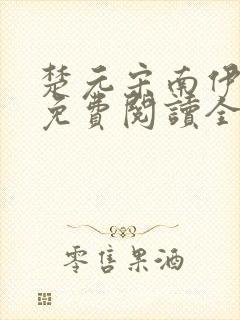 楚元宗南伊
免費閱讀全
零售果酒